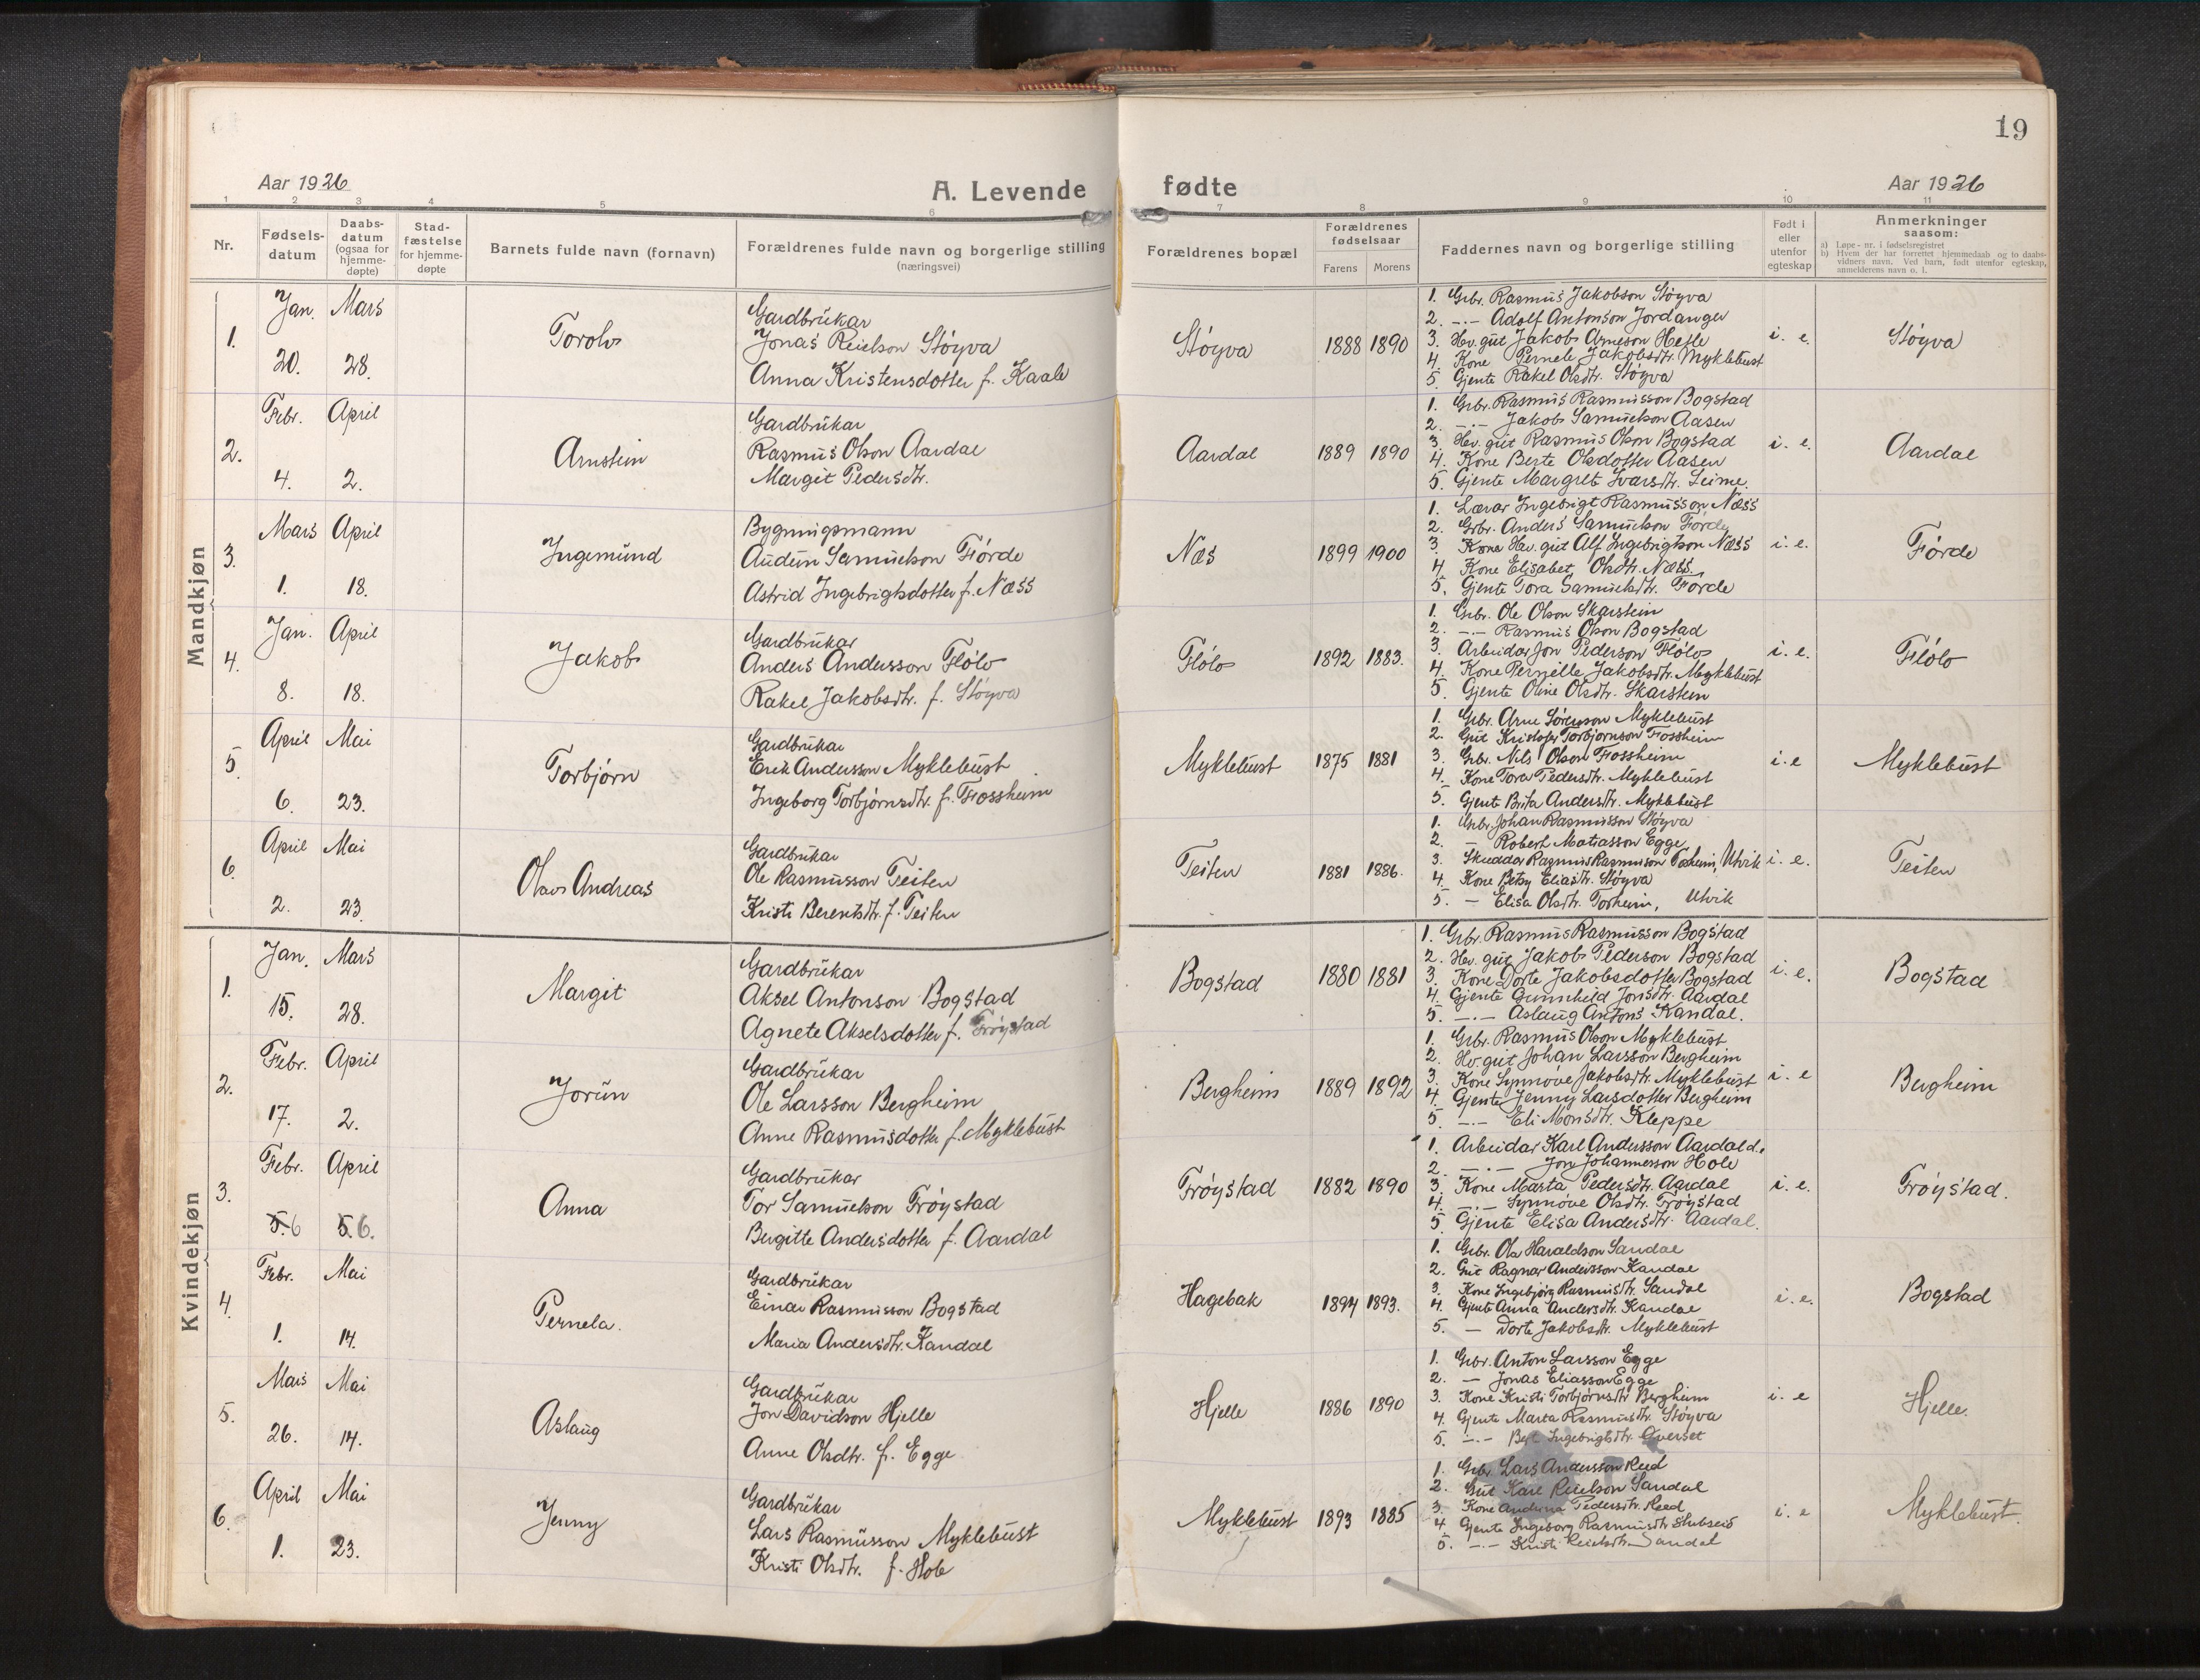 19
Aar 1926
A. Levende
fødte
Aar 1926
1 2 3 4 5 6
7 8 9 10 11
Nr.
Fødsels-
datum
Daabs-
datum
(ogsaa for
hjemme-
døpte)
Stad-
fæstelse
for hjemme-
døpte
Barnets fulde navn (fornavn)
Forældrenes fulde navn og borgerlige stilling
(næringsvei)
Forældrenes bopæl
Forældrenes
fødselsaar
Farens Morens
Faddernes navn og borgerlige stilling
Født i
eller
utenfor
egteskap
Anmerkninger
saasom:
a) Løpe-nr. i fødselsregistret
b) Hvem der har forrettet hjemmedaab og to daabs-
vidners navn. Ved barn, født utenfor egteskap,
anmelderens navn o. l.
Mandkjøn
1.
Jan. 20.
Mars 28.
Torolv
Gardbrukar
Jonas Reielson Støyva
Anna Kristensdotter f. Kaale
Støyva
1888 1890
1. Grbr. Rasmus Jakobson Støyva
2. -.- Adolf Antonson Jordanger
3. Hv. gut Jakob Arneson Hetle
4. Kone Pernele Jakobsdtr. Myklebust
5. Gjente Rakel Olsdtr. Støyva
i. e.
Støyva
2.
Febr. 4.
April 2.
Arnstein
Gardbrukar
Rasmus Olson Aardal
Margit Pedersdtr.
Aardal
1889 1890
1. Grbr. Rasmus Rasmusson Bogstad
2. -.- Jakob Samuelson Aasen
3. Hv. gut Rasmus Olson Bogstad
4. Kone Berte Olsdotter Aasen
5. Gjente Margret Ivarsdtr. Leime.
i. e.
Aardal
3.
Mars 1.
April 18.
Ingemund
Bygningsmann
Audun Samuelson Førde
Astrid Ingebrigtsdotter f. Næss
Næs
1899 1900
1. Lærar Ingebrigt Rasmusson Næss
2. Grbr. Anders Samuelson Førde
3. Kone Hv. gut Alf Ingebrigtson Næss
4. Kone Elisabet Olsdtr. Næss.
5. Gjente Tora Samuelsdtr. Førde
i. e.
Førde
4.
Jan. 8.
April 18.
Jakob
Gardbrukar
Anders Andersson Flølo
Rakel Jakobsdtr. f. Støyva
Flølo
1892 1883.
1. Grbr. Ole Olson Skarstein
2. -.- Rasmus Olson Bogstad
3. Arbeidar Jon Pederson Flølo
4. Kone Pernille Jakobsdtr. Myklebust
5. Gjente Oline Olsdtr. Skarstein
i. e.
Flølo
5.
April 6.
Mai 23.
Torbjørn
Gardbrukar
Erik Andersson Myklebust
Ingeborg Torbjørnsdtr. f. Fossheim
Myklebust
1875 1881
1. Grbr. Arne Sørenson Myklebust
2. Gut Kristofer Torbjørnson Fossheim
3. Grbr. Nils Olson Fossheim
4. Kone Tora Pedersdtr. Myklebust
5. Gjent Brita Andersdtr. Myklebust
i. e
Myklebust
6.
April 2.
Mai 23.
Olav Andreas
Gardbrukar
Ole Rasmusson Teiten
Kristi Berentsdtr. f. Teiten
Teiten
1881 1886.
1. Grbr. Johan Rasmusson Støyva
2. — Robert Matiasson Egge
3. Skreddar Rasmus Rasmusson Torheim, Utvik
4. Kone Betsy Eliasdtr. Støyva
5. — Elisa Olsdtr. Torheim, Utvik
i. e.
Teiten
Kvindekjøn
1.
Jan. 15.
Mars 28.
Margit
Gardbrukar
Aksel Antonson Bogstad
Agnete Akselsdotter f. Frøystad
Bogstad
1880 1881
1. Grbr. Rasmus Rasmusson Bogstad
2. Hv. gut Jakob Pederson Bogstad
3. Kone Dorte Jakobsdotter Bogstad
4. Gjente Gunnhild Jonsdtr. Aardal
5. -.- Aslaug Antons Kandal.
i. e.
Bogstad
2.
Febr. 17.
April 2.
Jorun
Gardbrukar
Ole Larsson Bergheim
Anne Rasmusdotter f. Myklebust
Bergheim
1889 1892
1. Grbr. Rasmus Olson Myklebust
2. Hv. gut Johan Larsson Bergheim
3. Kone Synnøve Jakobsdtr. Myklebust
4. Gjente Jenny Larsdotter Bergheim
5. -.- Eli Monsdtr. Kleppe
i. e
Bergheim
3.
Febr. 5. 6
April 5. 6.
Anna
Gardbrukar
Tor Samuelson Frøystad
Birgitte Andersdotter f. Aardal
Frøystad
1882 1890
1. Arbeidar Karl Andersson Aardal d.
2. -.- Jon Johannesson Hole
3. Kone Marta Pedersdtr. Aardal
4. -.- Synnøve Olsdtr. Frøystad
5. Gjente Elisa Andersdtr. Aardal.
i. e.
Frøystad.
4.
Febr. 1.
Mai 14.
Pernela.
Gardbrukar
Einar Rasmusson Bogstad
Maria Andersdtr. Kandal
Hagebak
1894 1893.
1. Grbr. Ola Haraldson Sandal
2. Gut Ragnar Andersson Kandal
3. Kone Ingebjørg Rasmusdtr. Sandal
4. Gjente Anna Andersdtr. Kandal
5. — Dorte Jakobsdtr. Myklebust
i. e.
Bogstad
5.
Mars 26.
Mai 14.
Aslaug
Gardbrukar
Jon Davidson Hjelle
Anne Olsdtr. f. Egge
Hjelle
1886 1890
1. Grbr. Anton Larsson Egge
2. — Jonas Eliasson Egge
3. Kone Kristi Torbjørnsdtr Bergheim
4. Gjente Marta Rasmusdtr. Støyva
5. -.- Ingebrigtsdtr. Øverset
i. e
Hjelle.
6.
April 1.
Mai 23.
Jenny
Gardbrukar
Lars Rasmusson Myklebust
Kristi Olsdtr. f. Hole
Myklebust
1893 1885
1. Grbr. Lars Andersson Reed
2. Gut Karl Reielson Sandal
3. Kone Andrina Pedersdtr. Reed
4. Gjente Ingeborg Rasmusdtr
5. -.- Kristi Reielsdtr. Sandal
i. e
Myklebust.